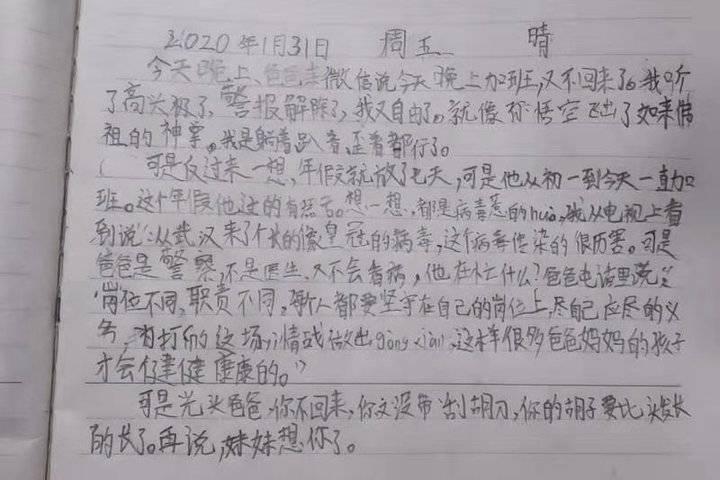 2020年1月31日 周五 晴
今天晚上,爸爸来微信说今天晚上加班,又不回来了。我听
了高兴极了,警报解除了,我又自由了。就像孙悟空飞出了如来佛
祖的神掌。我是躺着趴着歪着都行了。
可是反过来一想,年假就放了七天,可是他从初一到今天一直加
班。这个年假他过的有点苦。想一想,都是病毒惹的huò,我从电视上看
到说:从武汉来了个长的像皇冠的病毒,这个病毒传染的很历害。可是
爸爸是警察,不是医生,又不会看病,他在忙什么?爸爸电话里说:“
岗位不同,职责不同,每个人都要坚守在自己的岗位上,尽自己应尽的义
务,为打好这场疫情战做出gòng xiàn,这样很多爸爸妈妈的孩子
才会健健康康的。”
可是光头爸爸,你不回来,你又没带刮胡刀,你的胡子要比头发长
的长了。再说,妹妹想你了。